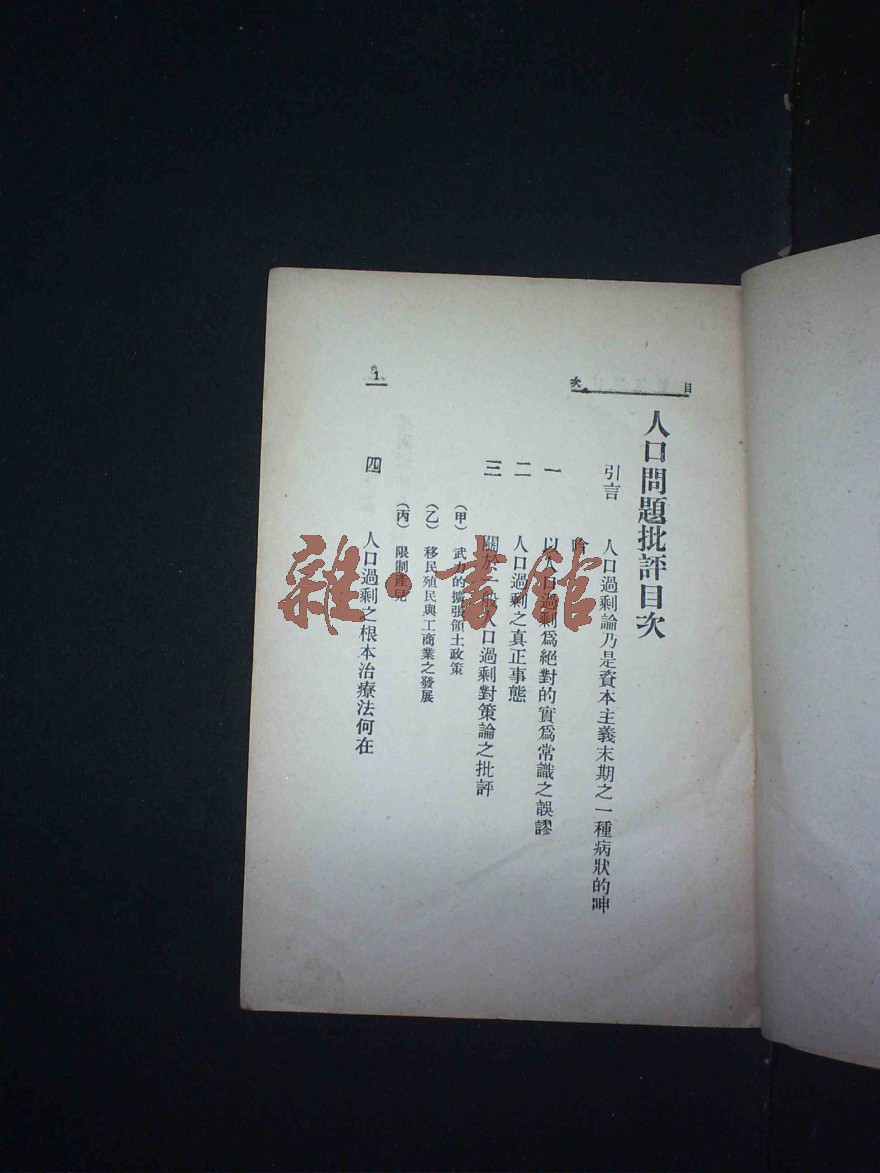 目次
人口問題批評目次
引言　人口過剩論乃是資本主義末期之一種病狀的呻
吟
一　以人口過剩爲絕對的實爲常識之誤謬
二　人口過剩之真正事態
三　關於一般人口過剩對策論之批評
（甲）武力的擴張領土政策
（乙）移民殖民與工商業之發展
（丙）限制產兒
四　人口過剩之根本治療法何在
1
雜·書館